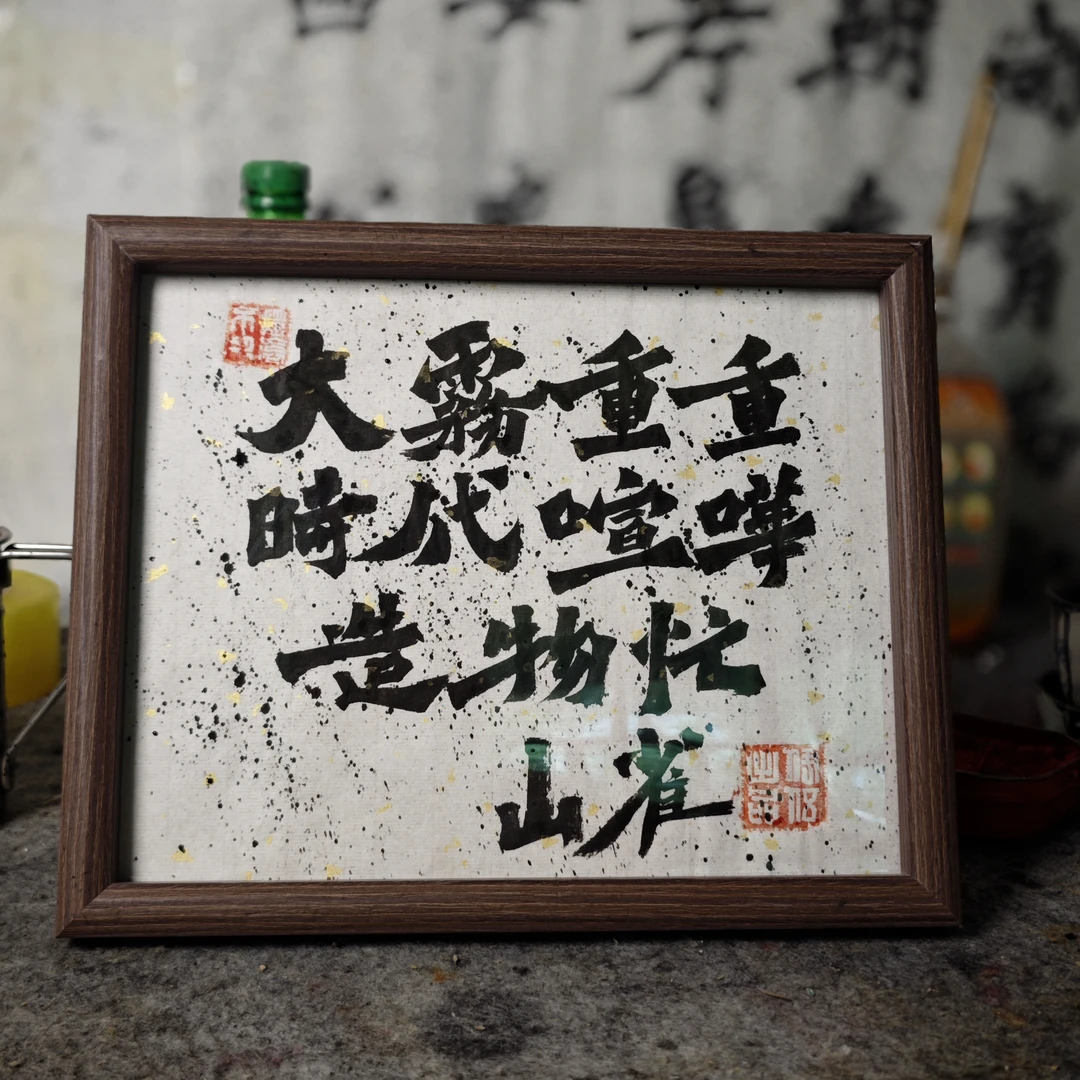 大霧重重
時代喧嘩
造物忙
山雀